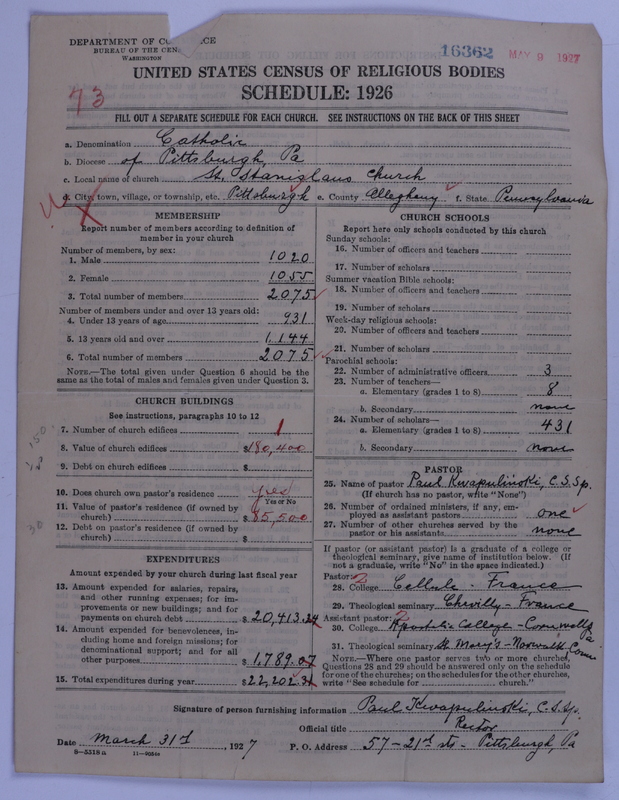 DEPARTMENT OF CO RCE
BUREAU OF THE CEN
WASHINGTON
16362 MAY 9 1927
UNITED STATES CENSUS OF RELIGIOUS BODIES
SCHEDULE: 1926
73
FILL OUT A SEPARATE SCHEDULE FOR EACH CHURCH. SEE INSTRUCTIONS ON THE BACK OF THIS SHEET
a. Denomination Catholic
b. Diocese of Pittsburgh, Pa
c. Local name of church St. Stanislaus Church
d. City, town, village, or township, etc. Pittsburgh e. County Allegheny f. State Pennsylvania
MEMBERSHIP
Report number of members according to definition of
member in your church
Number of members, by sex:
1. Male 1020
2. Female 1055
3. Total number of members 2075
Number of members under and over 13 years old:
4. Under 13 years of age 931
5. 13 years old and over 1,144
6. Total number of members 2075
NOTE.—The total given under Question 6 should be the
same as the total of males and females given under Question 3.
CHURCH BUILDINGS
See instructions, paragraphs 10 to 12
7. Number of church edifices 1
8. Value of church edifices $180,400
9. Debt on church edifices $
10. Does church own pastor's residence yes
Yes or No
11. Value of pastor's residence (if owned by
church) $85,500
12. Debt on pastor's residence (if owned by
church) $
EXPENDITURES
Amount expended by your church during last fiscal year
13. Amount expended for salaries, repairs,
and other running expenses; for im-
provements or new buildings; and for
payments on church debt $20,413.24
14. Amount expended for benevolences, in-
cluding home and foreign missions; for
denominational support; and for all
other purposes $1,789.07
15. Total expenditures during year $22,202.31
CHURCH SCHOOLS
Report here only schools conducted by this church
Sunday schools:
16. Number of officers and teachers
17. Number of scholars
Summer vacation Bible schools:
18. Number of officers and teachers
19. Number of scholars
Week-day religious schools:
20. Number of officers and teachers
21. Number of scholars
Parochial schools:
22. Number of administrative officers 3
23. Number of teachers—
a. Elementary (grades 1 to 8) 8
b. Secondary none
24. Number of scholars—
a. Elementary (grades 1 to 8) 431
b. Secondary none
PASTOR
25. Name of pastor Paul Kwapulinski, C.S.Sp.
(If church has no pastor, write "None")
26. Number of ordained ministers, if any, em-
ployed as assistant pastors one
27. Number of other churches served by the
pastor or his assistants none
If pastor (or assistant pastor) is a graduate of a college or
theological seminary, give name of institution below. (If
not a graduate, write "No" in the space indicated.)
Pastor: 2
28. College Cellule - France
29. Theological seminary Chevilly - France
Assistant pastor: 2
30. College Apostolic College - Cornwells Pa
31. Theological seminary St Mary's - Norwalk Conn
NOTE.—Where one pastor serves two or more churches,
Questions 28 and 29 should be answered only on the schedule
for one of the churches; on the schedules for the other churches,
write "See schedule for church."
Signature of person furnishing information Paul Kwapulinski, C.S.Sp.
Official title Rector
Date March 31st, 1927 P. O. Address 57 - 21st St - Pittsburgh, Pa
8-5518a 11-9054a